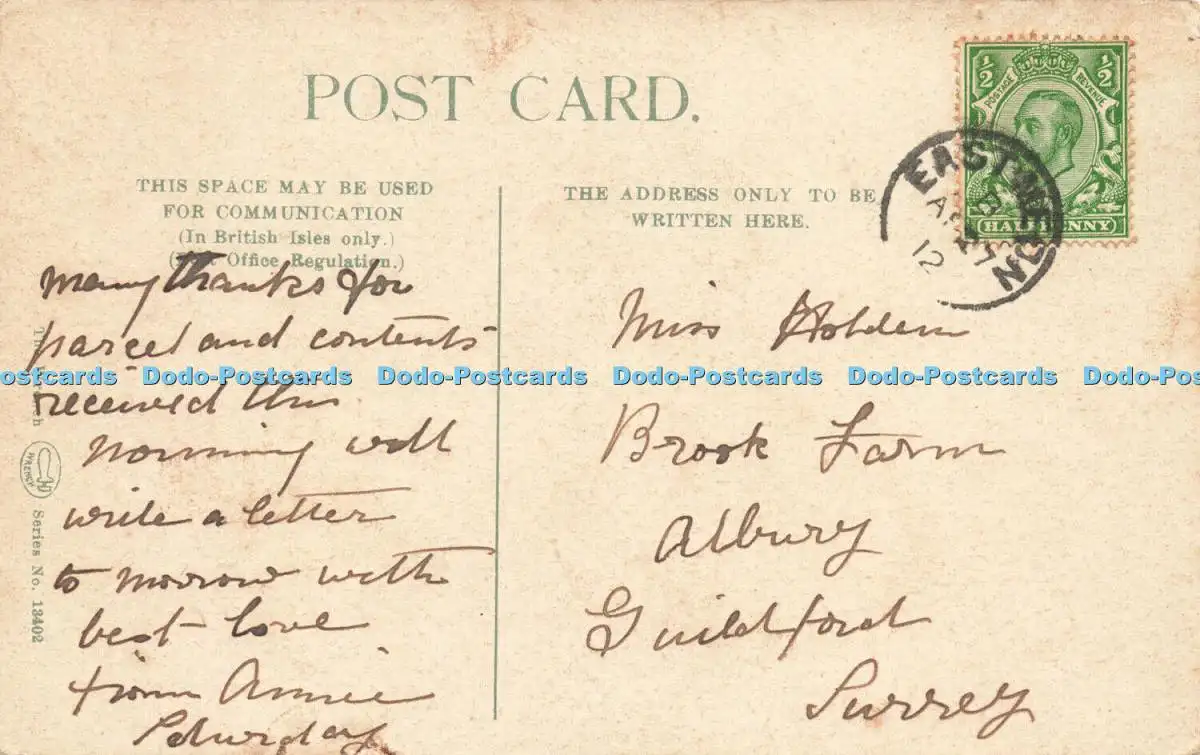 POST CARD.
THIS SPACE MAY BE USED
FOR COMMUNICATION
(In British Isles only.)
Office Regulation.)
THE ADDRESS ONLY TO BE
WRITTEN HERE.
½ ½
POSTAGE REVENUE
HALFPENNY
12
many thanks for
parcel and contents
received this
morning will
write a letter
to morrow with
best love
from Annie
Miss Holden
Brook Farm
Albury
Guildford
Surrey
Series No. 13402
WRENCH
ostcards Dodo-Postcards Dodo-Postcards Dodo-Postcards Dodo-Postcards Dodo-Po